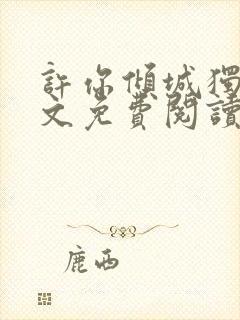 許你傾城獨
文免費閱讀
鹿西